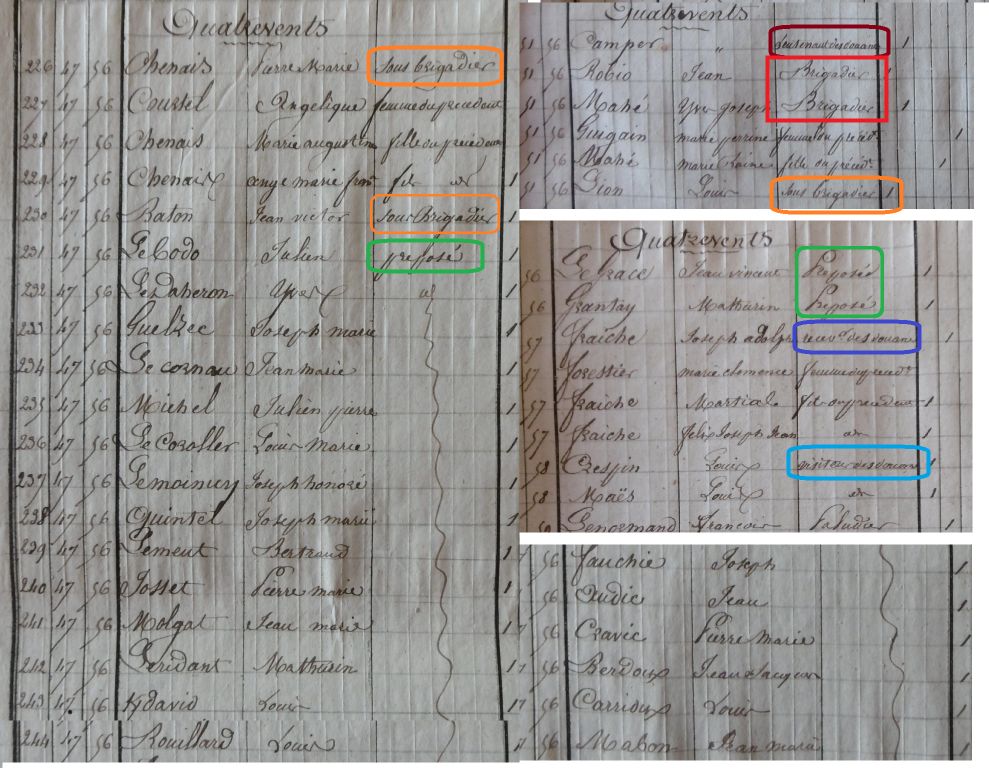 Quatrevents
226 47 56 Chenais Pierre Marie Sous brigadier
227 47 56 Courtel Angelique femme du précédent
228 47 56 Chenais Marie augustin fille du précédent
229 47 56 Chenais ange marie fils 1
230 47 56 Baton Jean victor Sous Brigadier 1
231 47 56 Le bodo Julien préposé 1
232 47 56 Le Daheron Yves id 1
233 47 56 Guelzec Joseph marie 1
234 47 56 Le cornau Jean marie 1
235 47 56 Michel Julien pierre 1
236 47 56 Le Coroller Louis Marie 1
237 47 56 Joseph honoré 1
238 47 56 Quintel Joseph marie 1
239 47 56 Lement Bertrand 1
240 47 56 Josset Pierre marie 1
241 47 56 Molgat Jean marie 1
242 47 56 Leridant Mathurin 1
243 47 56 Kdavid Louis 1
244 47 56 Rouillard Louis 1
Quatrevents
51 56 Camper " Lieutenant des douanes 1
51 56 Robio Jean Brigadier 1
51 56 Mahé Yves Joseph Brigadier 1
51 56 Guigain marie perrine femme du précédt 1
51 56 Mahé marie fille du précédt 1
51 56 Dion Louis Sous brigadier 1
Quatrevents
56 Jean vincent Préposé 1
56 Grantay Mathurin Préposé 1
57 fraiche Joseph adolph recevr des douanes 1
57 forestier marie clemence femme du précédt 1
57 fraiche Martial fils du précédent 1
57 fraiche felix Joseph Jean id 1
58 Crespin Louis visiteur des douanes 1
58 Maës Louis id 1
Lenormand François Paludier 1
56 fauchie Joseph 1
56 Oudic Jean 1
56 Cravic Pierre Marie 1
56 Berdoux Jean Jacques 1
56 Carrioux Louis 1
56 Mabon Jean marie 1